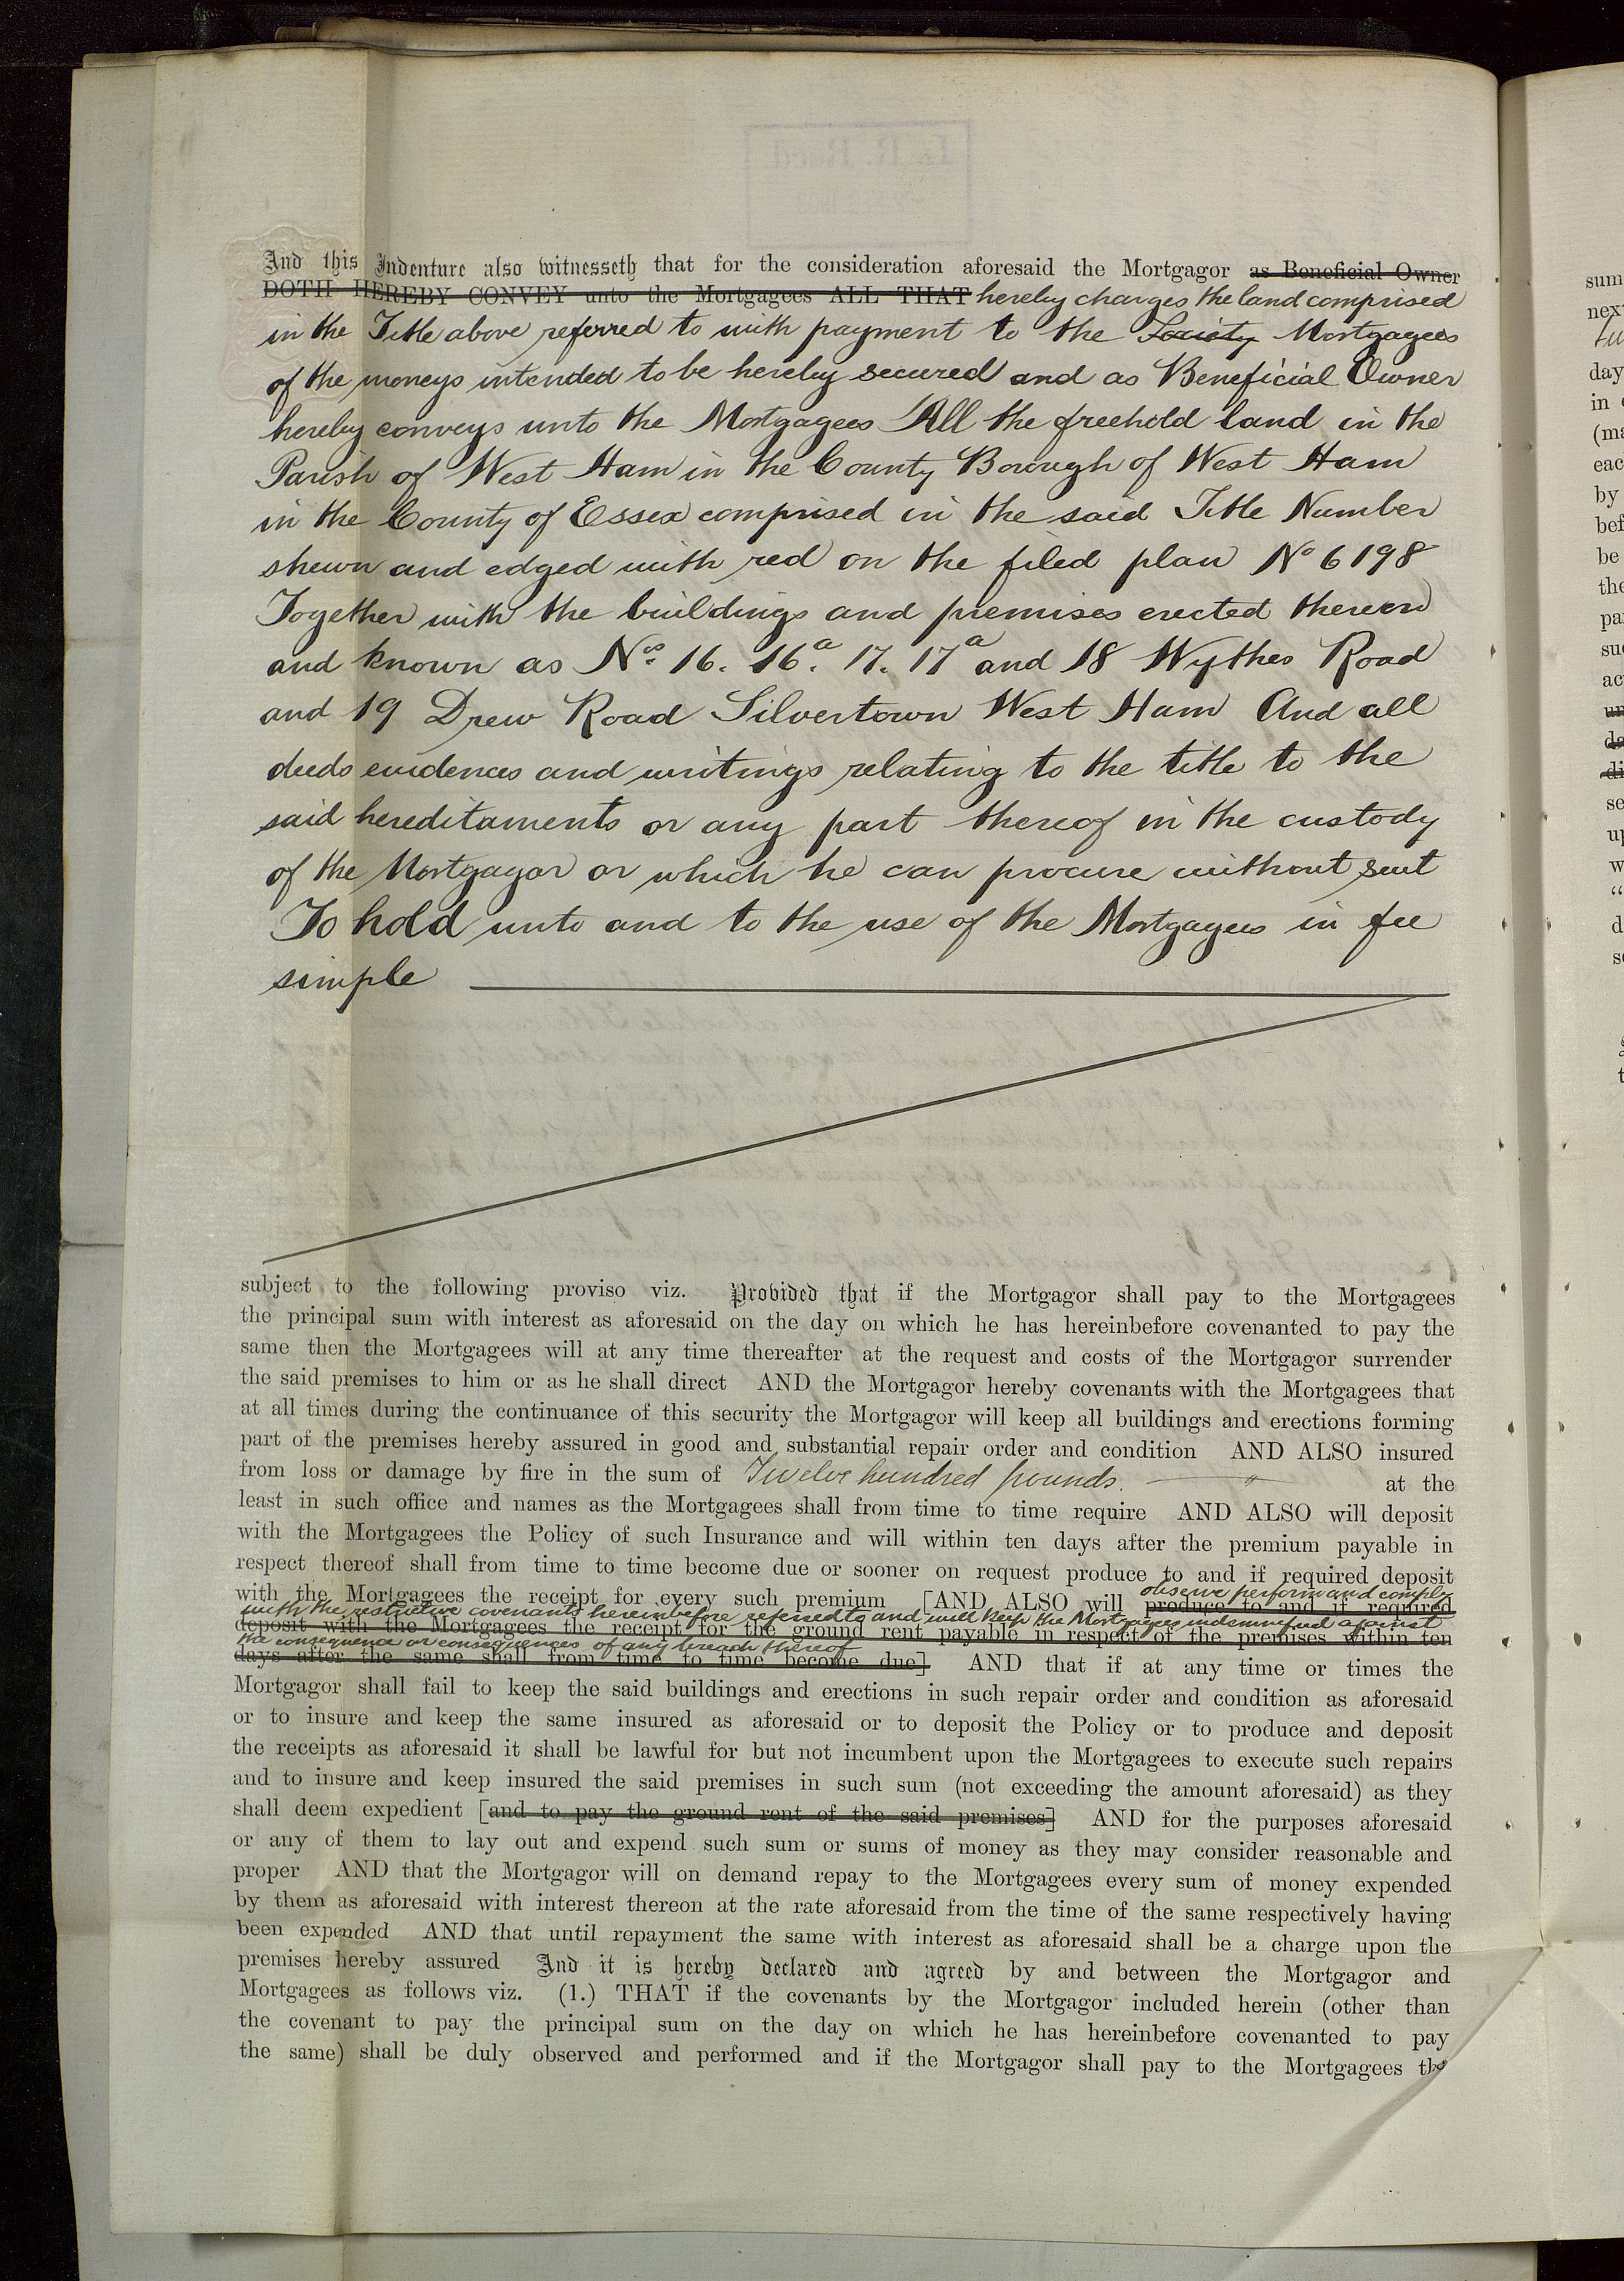 And this Indenture also witnesseth that for the consideration aforesaid the Mortgagor as Beneficial Owner
DOTH HEREBY CONVEY unto the Mortgagees ALL THAT hereby charges the land comprised
in the Title above referred to with payment to the Society Mortgagees
of the moneys intended to be hereby secured and as Beneficial Owner
hereby conveys unto the Mortgagees All the freehold land in the
Parish of West Ham in the County Borough of West Ham
in the County of Essex comprised in the said Title Number
shewn and edged with red on the filed plan No 6198
Together with the buildings and premises erected thereon
and known as Nos. 16. 16a. 17. 17a and 18 Wythes Road
and 19 Drew Road Silvertown West Ham And all
deeds evidences and writings relating to the title to the
said hereditaments or any part thereof in the custody
of the Mortgagor or which he can procure without suit
To hold unto and to the use of the Mortgagees in fee
simple
subject to the following proviso viz. Provided that if the Mortgagor shall pay to the Mortgagees
the principal sum with interest as aforesaid on the day on which he has hereinbefore covenanted to pay the
same then the Mortgagees will at any time thereafter at the request and costs of the Mortgagor surrender
the said premises to him or as he shall direct AND the Mortgagor hereby covenants with the Mortgagees that
at all times during the continuance of this security the Mortgagor will keep all buildings and erections forming
part of the premises hereby assured in good and substantial repair order and condition AND ALSO insured
from loss or damage by fire in the sum of Twelve hundred pounds. at the
least in such office and names as the Mortgagees shall from time to time require AND ALSO will deposit
with the Mortgagees the Policy of such Insurance and will within ten days after the premium payable in
respect thereof shall from time to time become due or sooner on request produce to and if required deposit
with the Mortgagees the receipt for every such premium [AND ALSO will produce to and if required
observe perform and comply
with the restrictive covenants hereinbefore referred to and will keep the Mortgagees indemnified against
deposit with the Mortgagees the receipt for the ground rent payable in respect of the premises within ten
the consequence or consequences of any breach thereof
days after the same shall from time to time become due] AND that if at any time or times the
Mortgagor shall fail to keep the said buildings and erections in such repair order and condition as aforesaid
or to insure and keep the same insured as aforesaid or to deposit the Policy or to produce and deposit
the receipts as aforesaid it shall be lawful for but not incumbent upon the Mortgagees to execute such repairs
and to insure and keep insured the said premises in such sum (not exceeding the amount aforesaid) as they
shall deem expedient [and to pay the ground rent of the said premises] AND for the purposes aforesaid
or any of them to lay out and expend such sum or sums of money as they may consider reasonable and
proper AND that the Mortgagor will on demand repay to the Mortgagees every sum of money expended
by them as aforesaid with interest thereon at the rate aforesaid from the time of the same respectively having
been expended AND that until repayment the same with interest as aforesaid shall be a charge upon the
premises hereby assured And it is hereby declared and agreed by and between the Mortgagor and
Mortgagees as follows viz. (1.) THAT if the covenants by the Mortgagor included herein (other than
the covenant to pay the principal sum on the day on which he has hereinbefore covenanted to pay
the same) shall be duly observed and performed and if the Mortgagor shall pay to the Mortgagees the